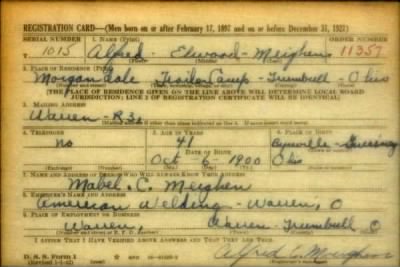 REGISTRATION CARD—(Men born on or after February 17, 1897 and on or before December 31, 1921)
SERIAL NUMBER 1. NAME (Print) ORDER NUMBER
T 1015 Alfred Elwood Meighen 11357
2. PLACE OF RESIDENCE (Print)
Morgandale Trailer Camp - Trumbull - Ohio
[THE PLACE OF RESIDENCE GIVEN ON THE LINE ABOVE WILL DETERMINE LOCAL BOARD
JURISDICTION; LINE 2 OF REGISTRATION CERTIFICATE WILL BE IDENTICAL]
3. MAILING ADDRESS
Warren - R3
4. TELEPHONE 5. AGE IN YEARS 6. PLACE OF BIRTH
no 41
DATE OF BIRTH
Oct - 6 - 1900 Ohio
7. NAME AND ADDRESS OF PERSON WHO WILL ALWAYS KNOW YOUR ADDRESS
Mabel C. Meighen
8. EMPLOYER'S NAME AND ADDRESS
American Welding - Warren, O
9. PLACE OF EMPLOYMENT OR BUSINESS
Warren, Warren - Trumbull O
I AFFIRM THAT I HAVE VERIFIED ABOVE ANSWERS AND THAT THEY ARE TRUE.
D. S. S. Form 1
Alfred E. Meighen